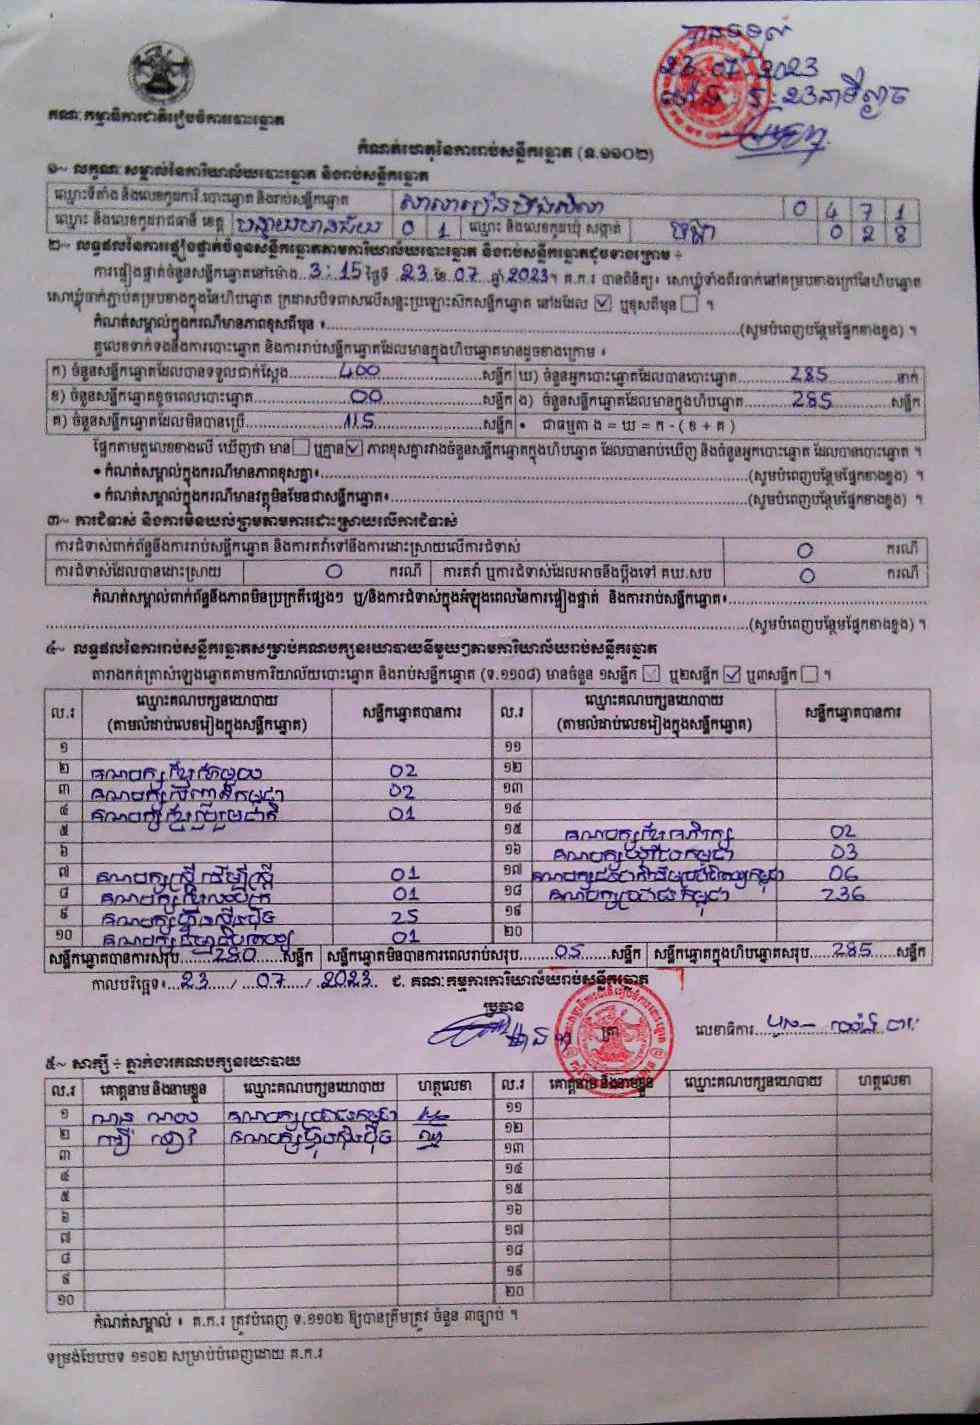 បានទទួល
23.07.2023
ម៉ោង 5:23នាទីល្ងាច
គណៈកម្មាធិការជាតិរៀបចំការបោះឆ្នោត
កំណត់ហេតុនៃការរាប់សន្លឹកឆ្នោត (ទ.១១០២)
១~ លក្ខណៈសម្គាល់នៃការិយាល័យបោះឆ្នោត និងរាប់សន្លឹកឆ្នោត
ឈ្មោះទីតាំង និងលេខកូដការិ.បោះឆ្នោត និងរាប់សន្លឹកឆ្នោត សាលារៀន 0 4 7 1
ឈ្មោះ និងលេខកូដរាជធានី ខេត្ត បន្ទាយមានជ័យ 0 1 ឈ្មោះ និងលេខកូដឃុំ សង្កាត់ 0 2 8
២~ លទ្ធផលនៃការផ្ទៀងផ្ទាត់ចំនួនសន្លឹកឆ្នោតតាមការិយាល័យបោះឆ្នោត និងរាប់សន្លឹកឆ្នោតដូចខាងក្រោម ÷
ការផ្ទៀងផ្ទាត់ចំនួនសន្លឹកឆ្នោតនៅម៉ោង 3:15 ថ្ងៃទី 23 ខែ 07 ឆ្នាំ 2023។ គ.ក.រ បានពិនិត្យ៖ សោឃ្លុំទាំងពីរចាក់នៅគម្របខាងក្រៅនៃហិបឆ្នោត
សោឃ្លុំចាក់ភ្ជាប់គម្របខាងក្នុងនៃហិបឆ្នោត ក្រដាសបិទពាសលើសន្ទះប្រឡោះសិកសន្លឹកឆ្នោត នៅដដែល ☑ ឬខុសពីមុន ☐ ។
កំណត់សម្គាល់ក្នុងករណីមានភាពខុសពីមុន ៖ (សូមបំពេញបន្ថែមផ្នែកខាងខ្នង) ។
តួលេខទាក់ទងនឹងការបោះឆ្នោត និងការរាប់សន្លឹកឆ្នោតដែលមានក្នុងហិបឆ្នោតមានដូចខាងក្រោម ៖
ក) ចំនួនសន្លឹកឆ្នោតដែលបានទទួលជាក់ស្តែង 400 សន្លឹក ឃ) ចំនួនអ្នកបោះឆ្នោតដែលបានបោះឆ្នោត 285 នាក់
ខ) ចំនួនសន្លឹកឆ្នោតខូចពេលបោះឆ្នោត 00 សន្លឹក ង) ចំនួនសន្លឹកឆ្នោតដែលមានក្នុងហិបឆ្នោត 285 សន្លឹក
គ) ចំនួនសន្លឹកឆ្នោតដែលមិនបានប្រើ 115 សន្លឹក • ជាធម្មតា ង = ឃ = ក - ( ខ + គ )
ផ្អែកតាមតួលេខខាងលើ ឃើញថា មាន ☐ ឬគ្មាន ☑ ភាពខុសគ្នារវាងចំនួនសន្លឹកឆ្នោតក្នុងហិបឆ្នោត ដែលបានរាប់ឃើញ និងចំនួនអ្នកបោះឆ្នោត ដែលបានបោះឆ្នោត ។
• កំណត់សម្គាល់ក្នុងករណីមានភាពខុសគ្នា៖ (សូមបំពេញបន្ថែមផ្នែកខាងខ្នង) ។
• កំណត់សម្គាល់ក្នុងករណីមានវត្ថុមិនមែនជាសន្លឹកឆ្នោត៖ (សូមបំពេញបន្ថែមផ្នែកខាងខ្នង) ។
៣~ ការជំទាស់ និងការមិនយល់ព្រមតាមការដោះស្រាយលើការជំទាស់
ការជំទាស់ពាក់ព័ន្ធនឹងការរាប់សន្លឹកឆ្នោត និងការតវ៉ាទៅនឹងការដោះស្រាយលើការជំទាស់ 0 ករណី
ការជំទាស់ដែលបានដោះស្រាយ 0 ករណី ការតវ៉ា ឬការជំទាស់ដែលអាចនឹងប្តឹងទៅ គឃ.សប 0 ករណី
កំណត់សម្គាល់ពាក់ព័ន្ធនឹងភាពមិនប្រក្រតីផ្សេងៗ ឬ/និងការជំទាស់ក្នុងអំឡុងពេលនៃការផ្ទៀងផ្ទាត់ និងការរាប់សន្លឹកឆ្នោត៖
(សូមបំពេញបន្ថែមផ្នែកខាងខ្នង) ។
៤~ លទ្ធផលនៃការរាប់សន្លឹកឆ្នោតសម្រាប់គណបក្សនយោបាយនីមួយៗតាមការិយាល័យរាប់សន្លឹកឆ្នោត
តារាងកត់ត្រាសំឡេងឆ្នោតតាមការិយាល័យបោះឆ្នោត និងរាប់សន្លឹកឆ្នោត (ទ.១១០៨) មានចំនួន ១សន្លឹក ☑ ឬ២សន្លឹក ☑ ឬ៣សន្លឹក ☐ ។
ល.រ ឈ្មោះគណបក្សនយោបាយ (តាមលំដាប់លេខរៀងក្នុងសន្លឹកឆ្នោត) សន្លឹកឆ្នោតបានការ ល.រ ឈ្មោះគណបក្សនយោបាយ (តាមលំដាប់លេខរៀងក្នុងសន្លឹកឆ្នោត) សន្លឹកឆ្នោតបានការ
១ ១១
២ គណបក្សខ្មែរតែមួយ 02 ១២
៣ គណបក្ស 02 ១៣
៤ គណបក្សខ្មែររួបរួមជាតិ 01 ១៤
៥ ១៥ គណបក្សខ្មែរអភិរក្ស 02
៦ ១៦ គណបក្សយុវជនកម្ពុជា 03
៧ គណបក្សស្ត្រីដើម្បីស្ត្រី 01 ១៧ 06
៨ គណបក្ស 01 ១៨ គណបក្សប្រជាជនកម្ពុជា 236
៩ គណបក្សហ៊្វុនស៊ិនប៉ិច 25 ១៩
១០ គណបក្សធម្មាធិបតេយ្យ 01 ២០
សន្លឹកឆ្នោតបានការសរុប 280 សន្លឹក សន្លឹកឆ្នោតមិនបានការពេលរាប់សរុប 05 សន្លឹក សន្លឹកឆ្នោតក្នុងហិបឆ្នោតសរុប 285 សន្លឹក
កាលបរិច្ឆេទ៖ 23 / 07 / 2023 ជ. គណៈកម្មការការិយាល័យរាប់សន្លឹកឆ្នោត
ប្រធាន ត្រា លេខាធិការ
៥~ សាក្សី ÷ ភ្នាក់ងារគណបក្សនយោបាយ
ល.រ គោត្តនាម និងនាមខ្លួន ឈ្មោះគណបក្សនយោបាយ ហត្ថលេខា ល.រ គោត្តនាម និងនាមខ្លួន ឈ្មោះគណបក្សនយោបាយ ហត្ថលេខា
១ គណបក្សប្រជាជនកម្ពុជា ១១
២ គណបក្សហ៊្វុនស៊ិនប៉ិច ១២
៣ ១៣
៤ ១៤
៥ ១៥
៦ ១៦
៧ ១៧
៨ ១៨
៩ ១៩
១០ ២០
កំណត់សម្គាល់ ៖ គ.ក.រ ត្រូវបំពេញ ទ.១១០២ ឱ្យបានត្រឹមត្រូវ ចំនួន ៣ច្បាប់ ។
ទម្រង់បែបបទ ១១០២ សម្រាប់បំពេញដោយ គ.ក.រ